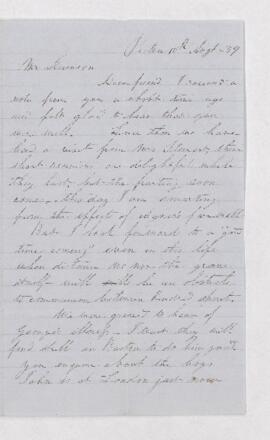 Picton 10th Augt - 59
Mr Stevenson
Dear friend I received a
note from you a short time ago
and felt glad to hear that you
were well. Since then we have
had a visit from Mrs Stewart, these
short reunions are delightful while
they last, but the parting soon
comes. This day I am smarting
from the effect of a
But I look forward to a "good
time coming" even in this life
when distance nor the grave
itself will be an obstacle
to communion between kindred spirits.
We were grieved to hear of
George's illness. I trust they will
find skill in Boston to do him good
You enquire about the boys
John is at London just now